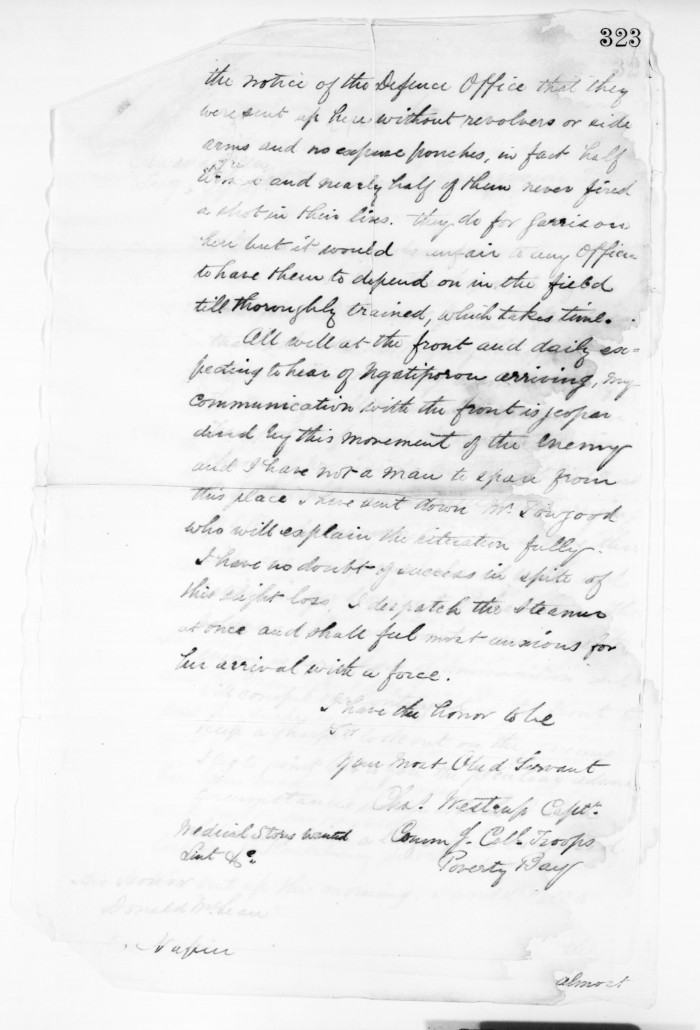 323
the notice of the Defence Office that they
were sent up here without revolvers or side
arms and no expense pouches, in fact half
and nearly half of them never fired
a shot in their lives. they do for garrison
here but it would unfair to any Officer
to have them to depend on in the field
till thoroughly trained, which takes time.
All well at the front and daily ex=
pecting to hear of Ngatiporou arriving, my
communication with the front is jeopar
dized by this movement of the Enemy
and I have not a man to spare from
this place I have sent down Mr. Towgood
who will explain the situation fully.
I have no doubt of success in spite of
this slight loss, I despatch the Steamer
at once and shall feel most anxious for
her arrival with a force.
I have the honor to be
Sir
your Most Obed Servant
Chas. Westrup Captn.
Comm g. Coll. Troops
Poverty Bay
Medical Stores wanted
Lint &c
His Honor
Donald McLean
Napier
almost